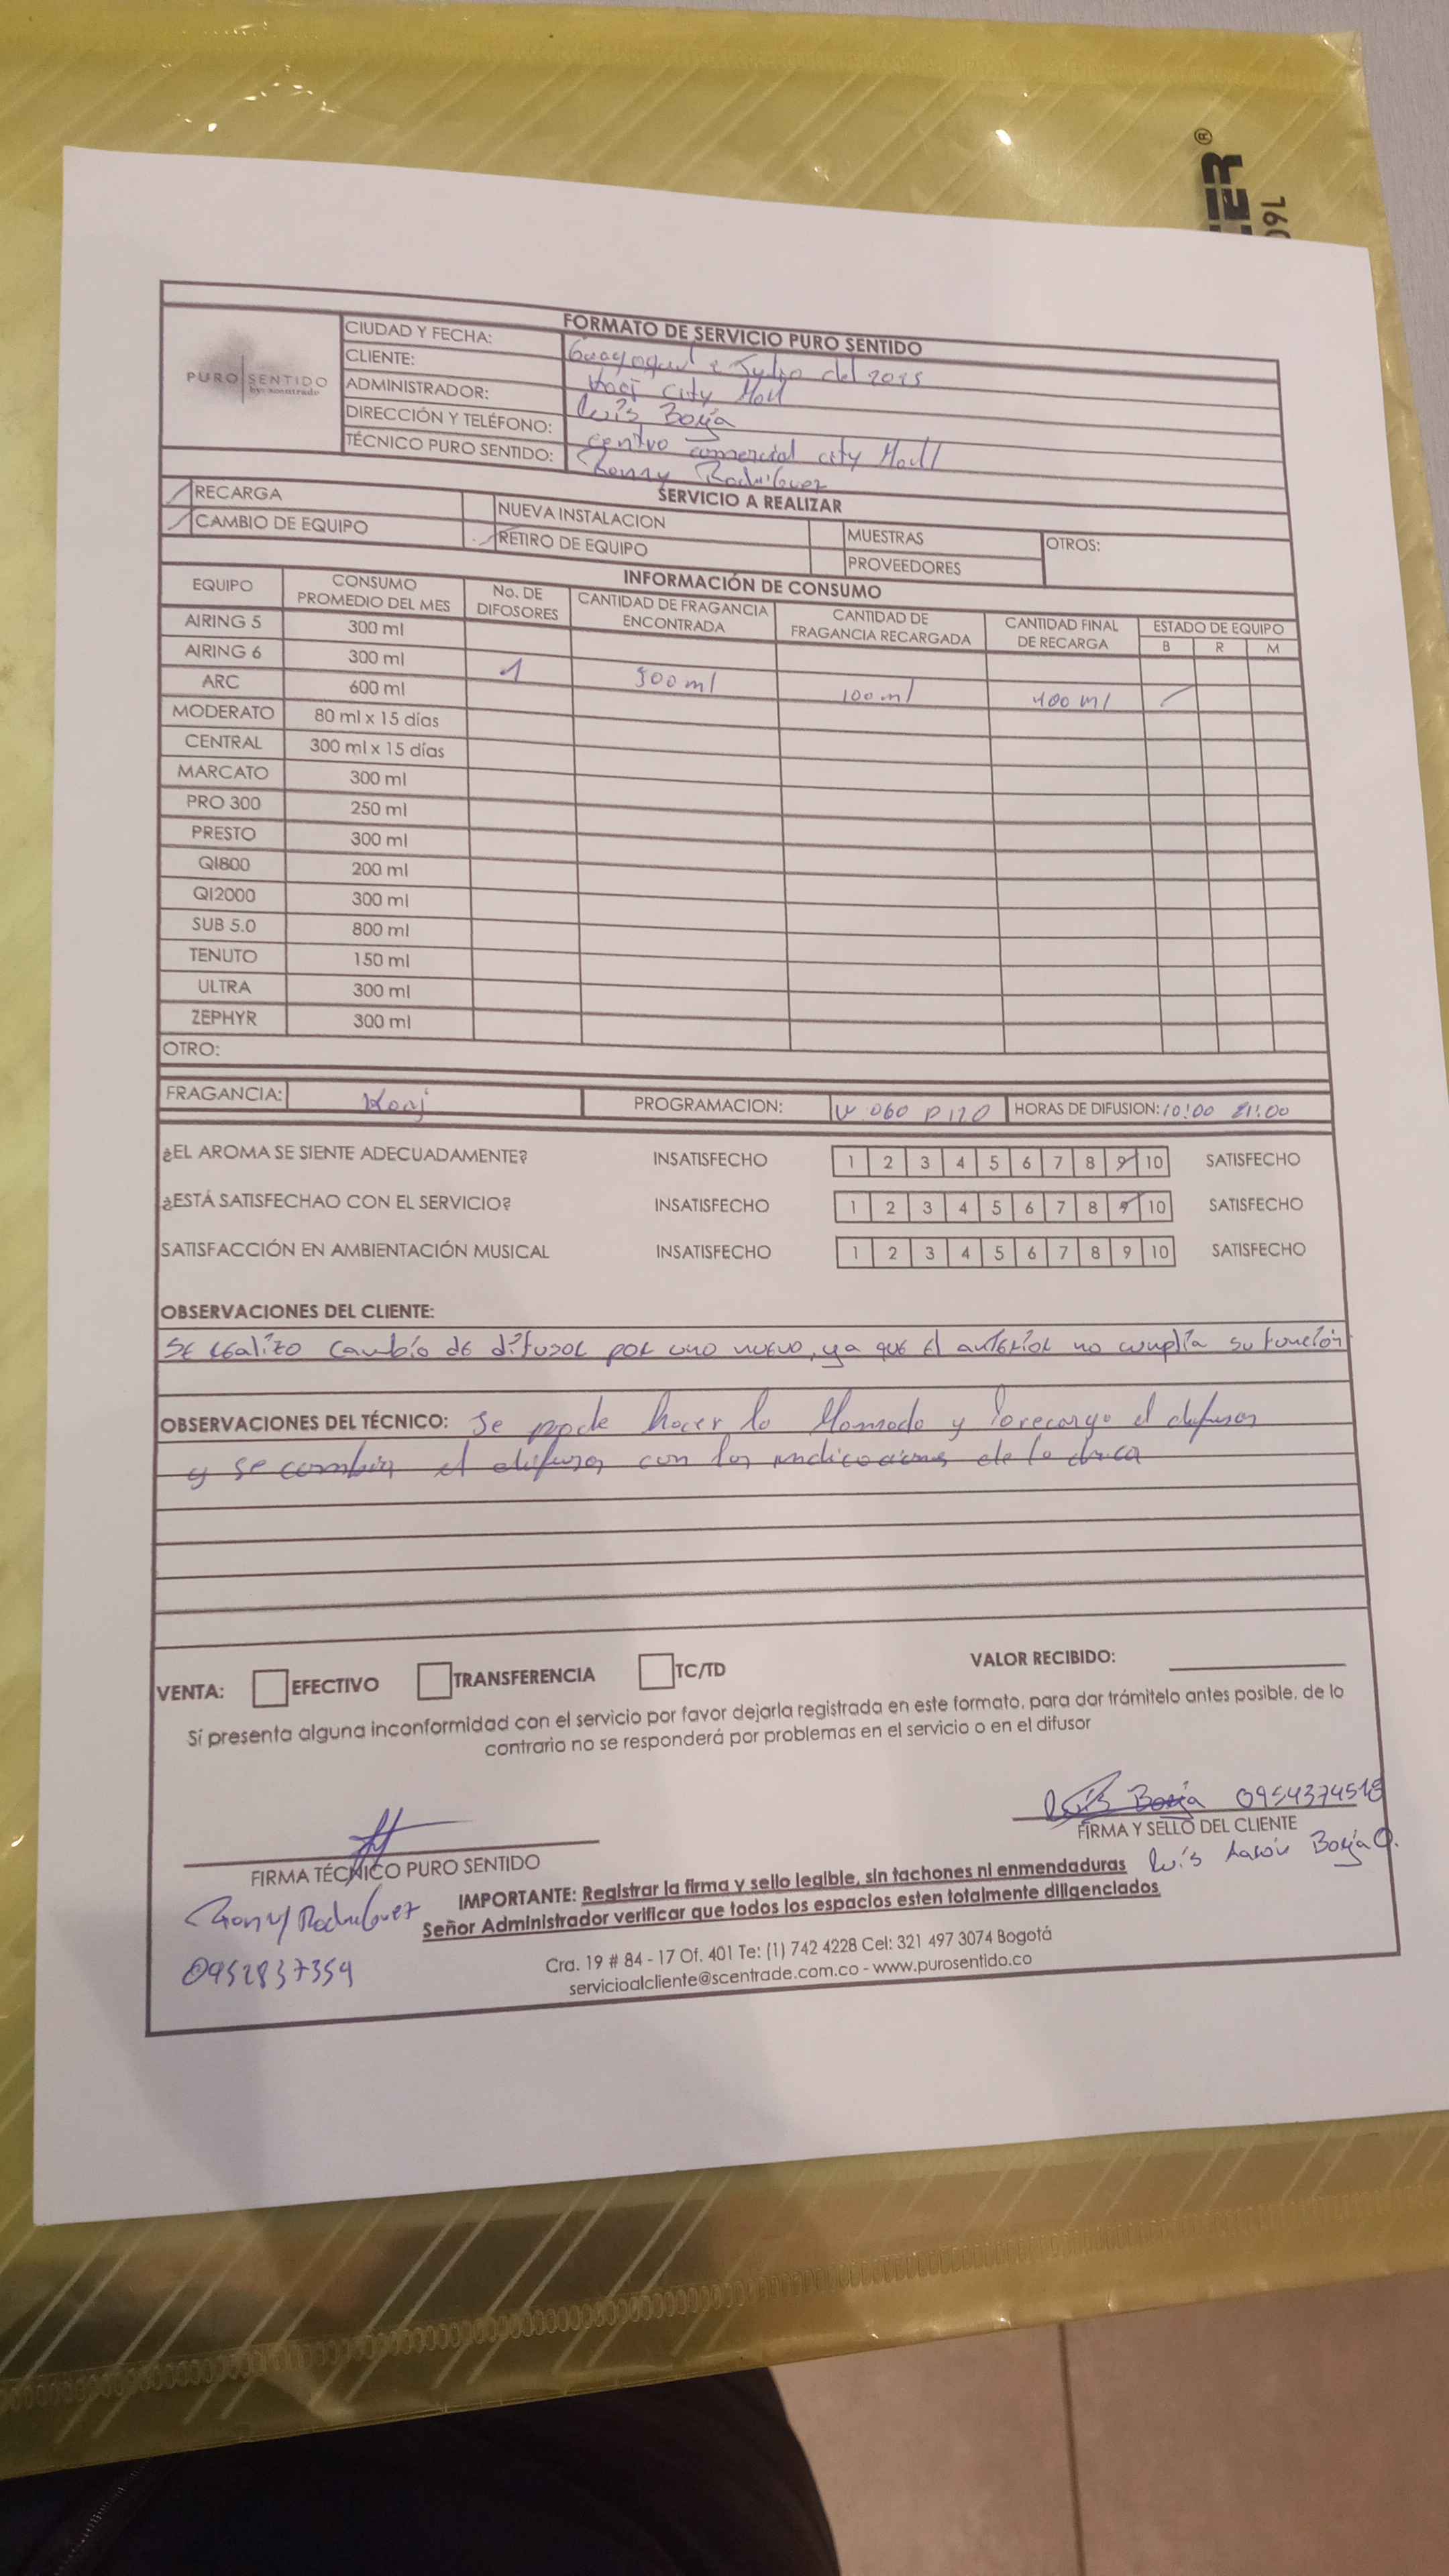 ER®
FORMATO DE SERVICIO PURO SENTIDO
PURO SENTIDO
by: scentrade
CIUDAD Y FECHA: Guayaquil 2 Julio del 2025
CLIENTE: City Mall
ADMINISTRADOR: Luis Borja
DIRECCIÓN Y TELÉFONO: centro comercial city Mall
TÉCNICO PURO SENTIDO: Ronny Rodriguez
SERVICIO A REALIZAR
RECARGA NUEVA INSTALACION MUESTRAS OTROS:
CAMBIO DE EQUIPO RETIRO DE EQUIPO PROVEEDORES
INFORMACIÓN DE CONSUMO
EQUIPO CONSUMO PROMEDIO DEL MES No. DE DIFOSORES CANTIDAD DE FRAGANCIA ENCONTRADA CANTIDAD DE FRAGANCIA RECARGADA CANTIDAD FINAL DE RECARGA ESTADO DE EQUIPO
B R M
AIRING 5 300 ml
AIRING 6 300 ml 1 300 ml 100 ml 400 ml
ARC 600 ml
MODERATO 80 ml x 15 días
CENTRAL 300 ml x 15 días
MARCATO 300 ml
PRO 300 250 ml
PRESTO 300 ml
QI800 200 ml
QI2000 300 ml
SUB 5.0 800 ml
TENUTO 150 ml
ULTRA 300 ml
ZEPHYR 300 ml
OTRO:
FRAGANCIA: PROGRAMACION: 060 P 120 HORAS DE DIFUSION: 10:00 21:00
¿EL AROMA SE SIENTE ADECUADAMENTE? INSATISFECHO 1 2 3 4 5 6 7 8 9 10 SATISFECHO
¿ESTÁ SATISFECHAO CON EL SERVICIO? INSATISFECHO 1 2 3 4 5 6 7 8 9 10 SATISFECHO
SATISFACCIÓN EN AMBIENTACIÓN MUSICAL INSATISFECHO 1 2 3 4 5 6 7 8 9 10 SATISFECHO
OBSERVACIONES DEL CLIENTE:
Se realizo cambio de difusor por uno nuevo, ya que el anterior no cumplia su función
OBSERVACIONES DEL TÉCNICO: Se hacer la llamada y recargo el difusor
y se cambia el difusor con las indicaciones de la
VENTA: EFECTIVO TRANSFERENCIA TC/TD VALOR RECIBIDO:
Sí presenta alguna inconformidad con el servicio por favor dejarla registrada en este formato, para dar trámitelo antes posible, de lo
contrario no se responderá por problemas en el servicio o en el difusor
Luis Borja 0954374518
FIRMA TÉCNICO PURO SENTIDO FIRMA Y SELLO DEL CLIENTE
Luis Aarón Borja O.
Ronny Rodriguez
0952837359
IMPORTANTE: Registrar la firma y sello legible, sin tachones ni enmendaduras
Señor Administrador verificar que todos los espacios esten totalmente diligenciados
Cra. 19 # 84 - 17 Of. 401 Te: (1) 742 4228 Cel: 321 497 3074 Bogotá
servicioalcliente@scentrade.com.co - www.purosentido.co